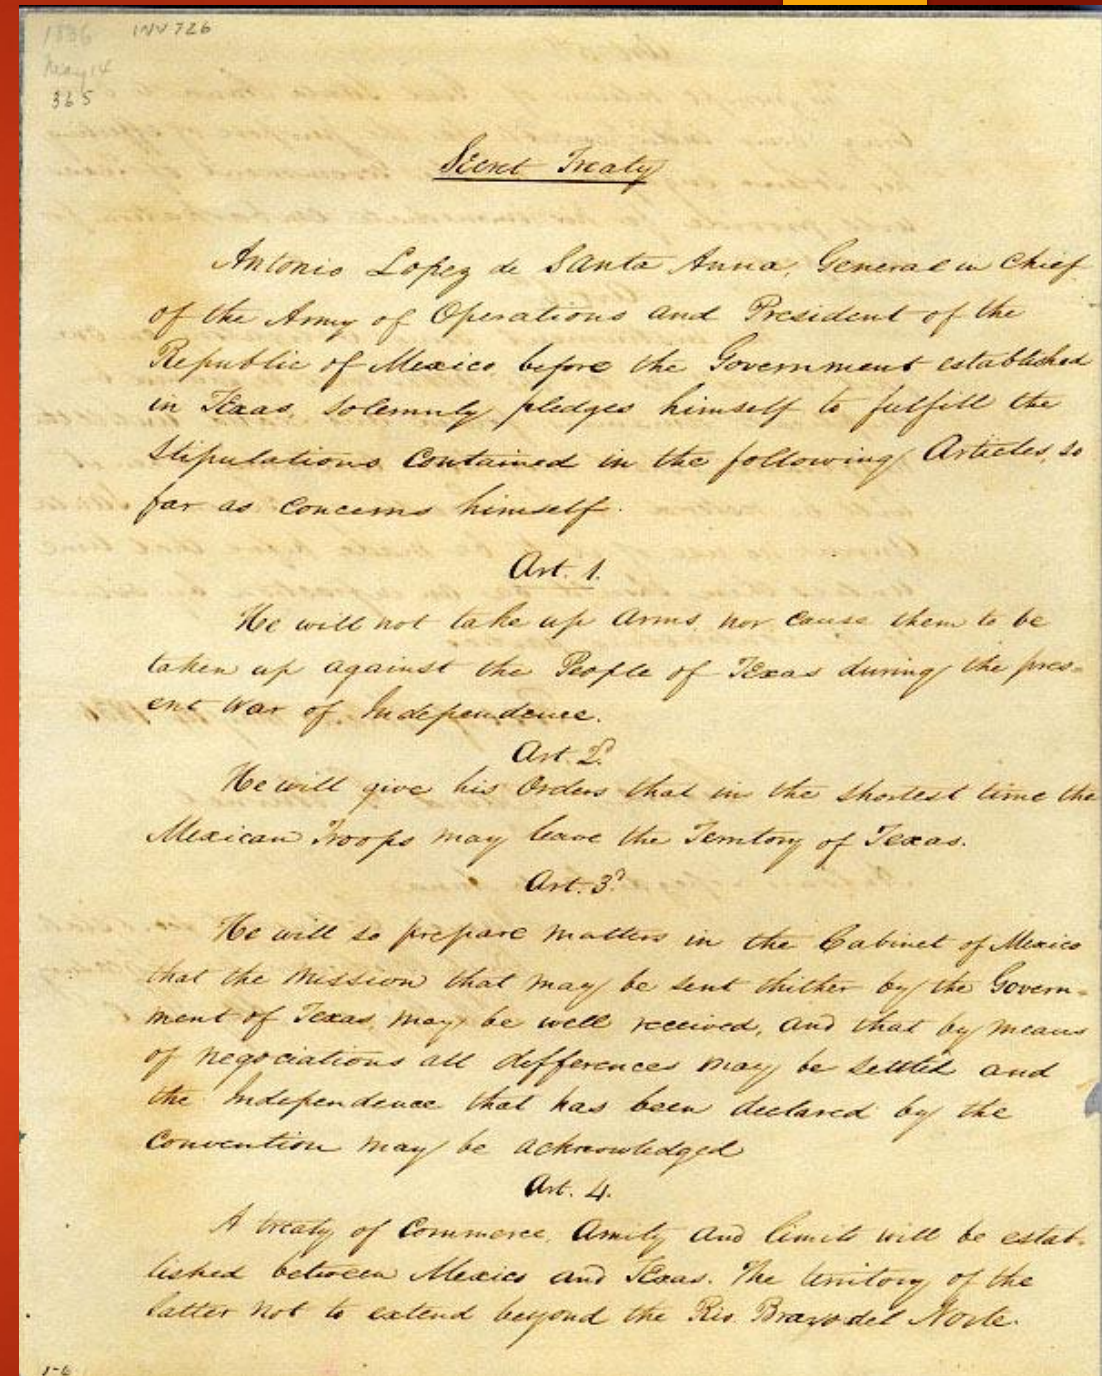 1836
INV 726
May 14
365
Secret Treaty
Antonio Lopez de Santa Anna, General in Chief
of the Army of Operations and President of the
Republic of Mexico, before the Government established
in Texas, Solemnly pledges himself to fulfill the
Stipulations Contained in the following Articles, so
far as concerns himself.
Art. 1.
He will not take up Arms, nor cause them to be
taken up against the People of Texas during the pres-
ent War of Independence.
Art. 2d.
He will give his Orders that in the shortest time the
Mexican Troops may leave the Territory of Texas.
Art. 3d.
He will so prepare matters in the Cabinet of Mexico
that the Mission that may be sent thither by the Govern-
ment of Texas may be well received, and that by means
of negociations all differences may be settled and
the Independence that has been declared by the
Convention may be acknowledged
Art. 4.
A treaty of Commerce, Amity and limits will be estab-
lished between Mexico and Texas. The territory of the
latter not to extend beyond the Rio Bravo del Norte.
1-6